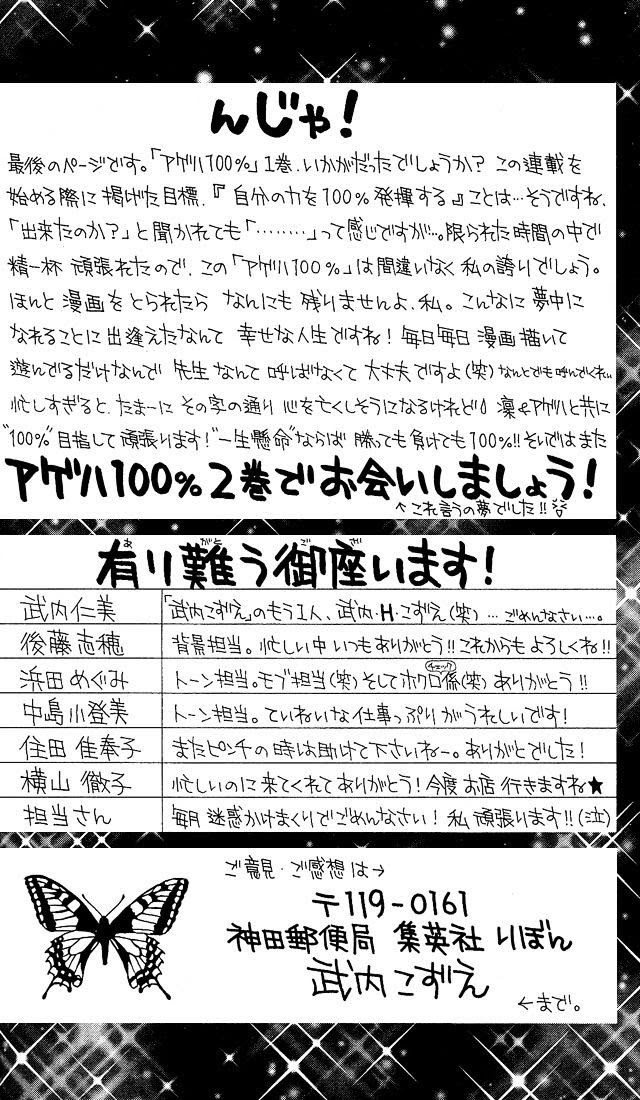 んじゃ!
最後のページです。「アゲハ100%」1巻、いかがだったでしょうか?この連載を
始める際に掲げた目標、『自分の力を100%発揮する』ことは…そうですね、
「出来たのか?」と聞かれても「………」って感じですが…。限られた時間の中で
精一杯頑張れたので、この「アゲハ100%」は間違いなく私の誇りでしょう。
ほんと漫画をとられたらなんにも残りませんよ、私。こんなに夢中に
なれることに出逢えたなんて幸せな人生ですね!毎日毎日漫画描いて
遊んでるだけなんで先生なんて呼ばなくて大丈夫ですよ(笑)なんとでも呼んでくれい
忙しすぎると、たまーにその字の通り心を亡くしそうになるけれど 凛&アゲハと共に
"100%"目指して頑張ります!"一生懸命"ならば勝っても負けても100%!!それではまた
アゲハ100%2巻でお会いしましょう!
↑これ言うの夢でした!!
有り難う御座います!
あ がと ご ざ
武内仁美 「武内こずえ」のもう1人、武内・H・こずえ(笑)…ごめんなさい…。
後藤志穂 背景担当。忙しい中いつもありがとう!!これからもよろしくね!!
浜田めぐみ トーン担当。モブ担当(笑)そしてホクロ係(笑)ありがとう!!
チェック
中島小登美 トーン担当。ていねいな仕事っぷりがうれしいです!
住田佳奉子 またピンチの時は助けて下さいねー。ありがとでした!
横山徹子 忙しいのに来てくれてありがとう!今度お店行きますね★
担当さん 毎月迷惑かけまくりでごめんなさい!私頑張ります!!(泣)
ご意見・ご感想は→
〒119-0161
神田郵便局 集英社 りぼん
武内こずえ
←まで。